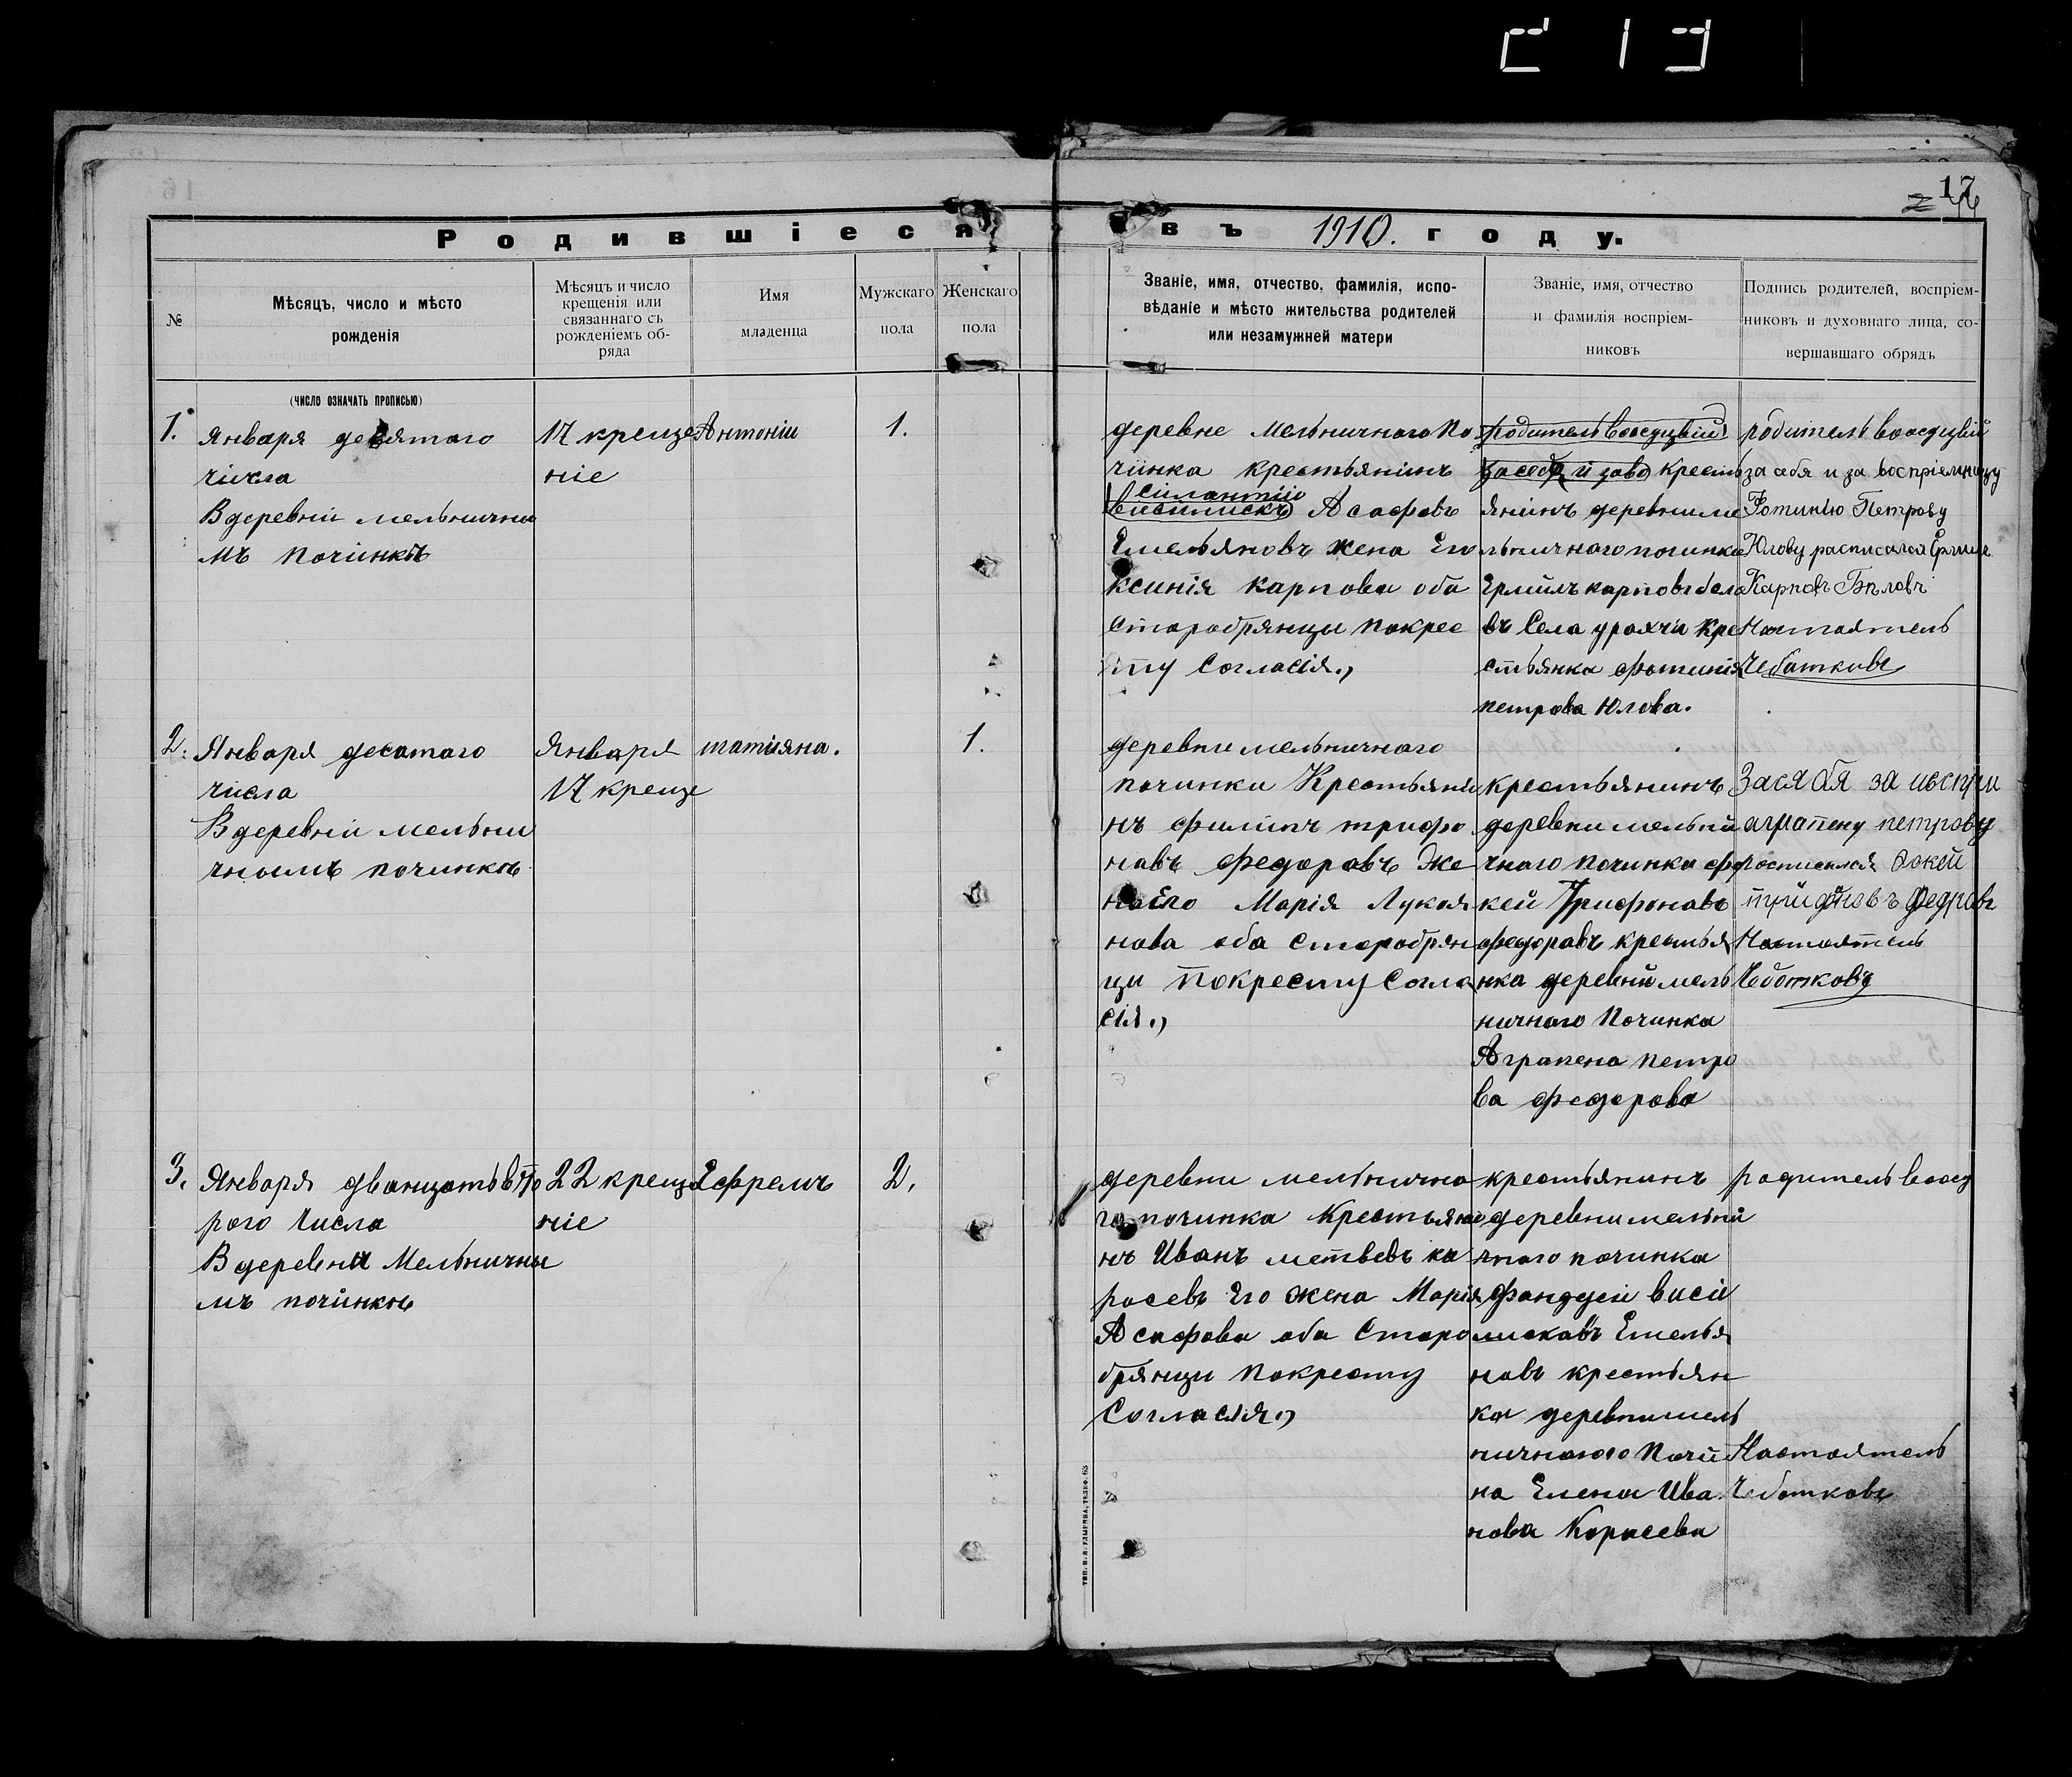 213
17
Родившіеся въ 1910. году.
№
Мѣсяцъ, число и мѣсто
рожденія
Мѣсяцъ и число
крещенія или
связаннаго съ
рожденіемъ об-
ряда
Имя
младенца
Мужскаго
пола
Женскаго
пола
Званіе, имя, отчество, фамилія, испо-
вѣданіе и мѣсто жительства родителей
или незамужней матери
Званіе, имя, отчество
и фамилія воспріем-
никовъ
Подпись родителей, воспріем-
никовъ и духовнаго лица, со-
вершавшаго обрядъ
(число означать прописью)
1.
января десятаго
числа
В деревни мельнични
мъ починкѣ
17 креще
ніе
Антоній
1.
деревне мельничного по
чинка крестьянинъ
силантий
Асафовъ
Емельяновъ жена Его
ксинія карпова оба
старобрянцы покрес
ту согласія.,
родитель
за себя и завo крестъ
янинъ деревни ме
льничного починка
Ермилъ карповъ бело
въ Села урахчи кре
стьянка фотинія
петрова Юлова.
родитель
за себя и за воспріемницу
Фотинію Петрову
Юлову расписался Ермилъ
Карповъ Бѣловъ
Настоятель
Чебатковъ
2.
Января десатаго
числа
В деревни мельни
чномъ починкѣ
Января
17 креще
татияна.
1.
деревни мельничного
починки Крестьяни
нъ филипъ трифо
навъ федоровъ Же
на Его Марія Лукоя
нова оба старобрян
цы покресту согла
сія.,
крестьянинъ
деревни мельни
чного починка фо
кей Трифонавъ
федоравъ крестья
нка деревни мель
ничного Починка
Аграпена петро
ва федорова
За
аграпену петрову
фокей
Настоятель
Чебатковъ
3.
Января дванцатьвто
рого Числа
В деревни Мельнични
мъ починкѣ
22 креще
ніе
Ефремъ
2.
деревни мельнично
го починка Крестьяни
нъ Иванъ метвевъ ка
расевъ Его жена Марія
Асафова оба Старо
брянцы покресту
Согласія.,
крестьянинъ
деревни мельни
чного починка
фандей васи
лисковъ Емелья
новъ крестьян
ка деревни мель
ничного Почи
на Елена Ива
нова Карасева
родитель
Настоятель
Чебатковъ